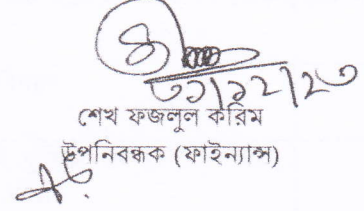 ৩১/১২/২৩
শেখ ফজলুল করিম
উপনিবন্ধক (ফাইন্যান্স)